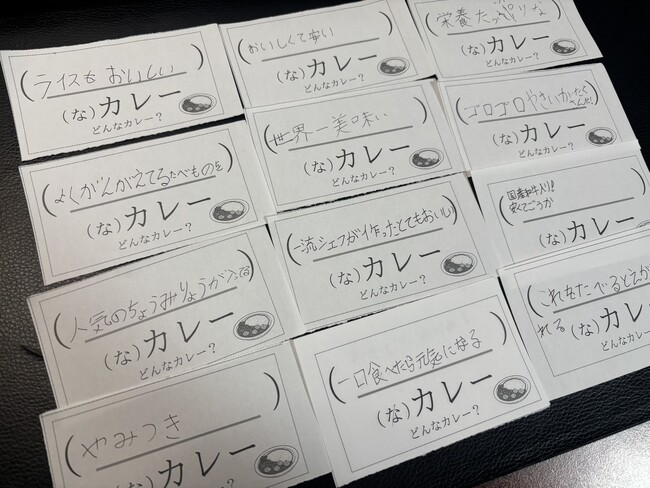 ライスも おいしい
(な)カレー
どんなカレー?
おいしくて安い
(な)カレー
どんなカレー?
栄養たっぷりな
(な)カレー
どんなカレー?
よくかんがえてるたべものを
(な)カレー
どんなカレー?
世界一美味い
(な)カレー
どんなカレー?
ゴロゴロやさいがたく
さんだ!
(な)カレー
どんなカレー?
人気のちょうみりょうが入ってる
(な)カレー
どんなカレー?
一流シェフが作ったとてもおいしい
(な)カレー
どんなカレー?
国産和牛入り!
安くてごうか
(な)カレー
どんなカレー?
やみつき
(な)カレー
どんなカレー?
一口食べたら元気になる
(な)カレー
どんなカレー?
これをたべるとえが
れる
(な)カレー
どんなカレー?